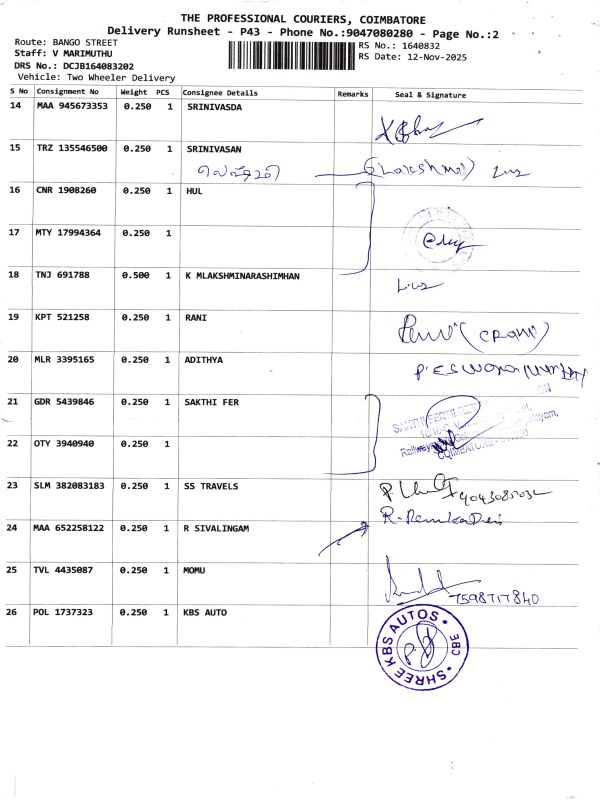 THE PROFESSIONAL COURIERS, COIMBATORE
Delivery Runsheet - P43 - Phone No.:9047080280 - Page No.:2
Route: BANGO STREET
RS No.: 1640832
Staff: V MARIMUTHU
RS Date: 12-Nov-2025
DRS No.: DCJB164083202
Vehicle: Two Wheeler Delivery
S No Consignment No Weight PCS Consignee Details Remarks Seal & Signature
14 MAA 945673353 0.250 1 SRINIVASDA
15 TRZ 135546500 0.250 1 SRINIVASAN
(Lakshmi)
16 CNR 1908260 0.250 1 HUL
17 MTY 17994364 0.250 1
18 TNJ 691788 0.500 1 K MLAKSHMINARASHIMHAN
19 KPT 521258 0.250 1 RANI
(CRANI)
20 MLR 3395165 0.250 1 ADITHYA
21 GDR 5439846 0.250 1 SAKTHI FER
22 OTY 3940940 0.250 1
23 SLM 382083183 0.250 1 SS TRAVELS
R. Renuka Devi
24 MAA 652258122 0.250 1 R SIVALINGAM
25 TVL 4435087 0.250 1 MOMU
7598717840
26 POL 1737323 0.250 1 KBS AUTO
SHREE KBS AUTOS
CBE